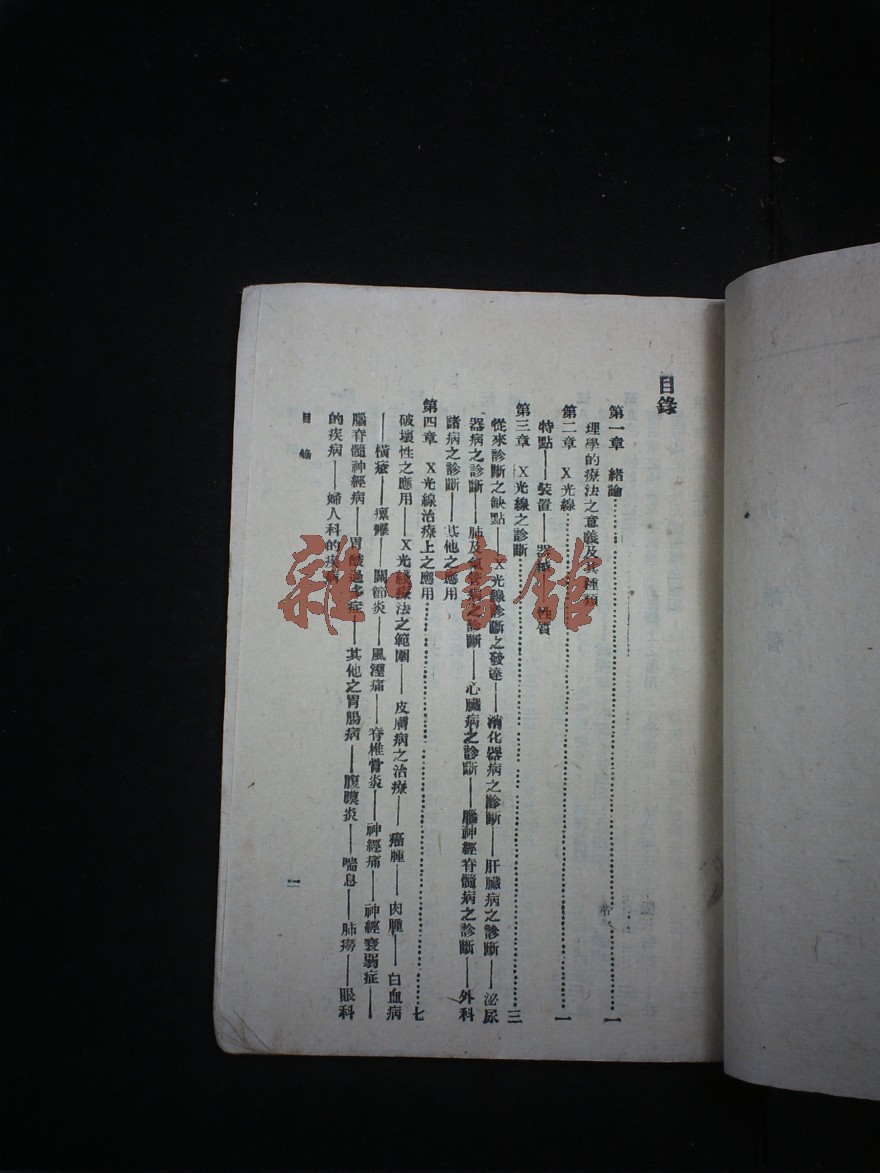 目錄
第一章 緒論……一
理學的療法之意義及其種類
第二章 X光線……一
特點——裝置——器械——性質
第三章 X光線之診斷……三
從來診斷之缺點——X光線診斷之發達——消化器病之診斷——肝臟病之診斷——泌尿
器病之診斷——肺及氣管病之診斷——心臟病之診斷——腦神經脊髓病之診斷——外科
諸病之診斷——其他之應用
第四章 X光線治療上之應用……七
破壞性之應用——X光線療法之範圍——皮膚病之治療——癌腫——肉腫——白血病
——橫痃——瘰癧——關節炎——風溼痛——脊椎骨炎——神經痛——神經衰弱症——
腦脊髓神經病——胃酸過多症——其他之胃腸病——腹膜炎——喘息——肺癆——眼科
的疾病——婦人科的疾病
目錄
一
雜·書館